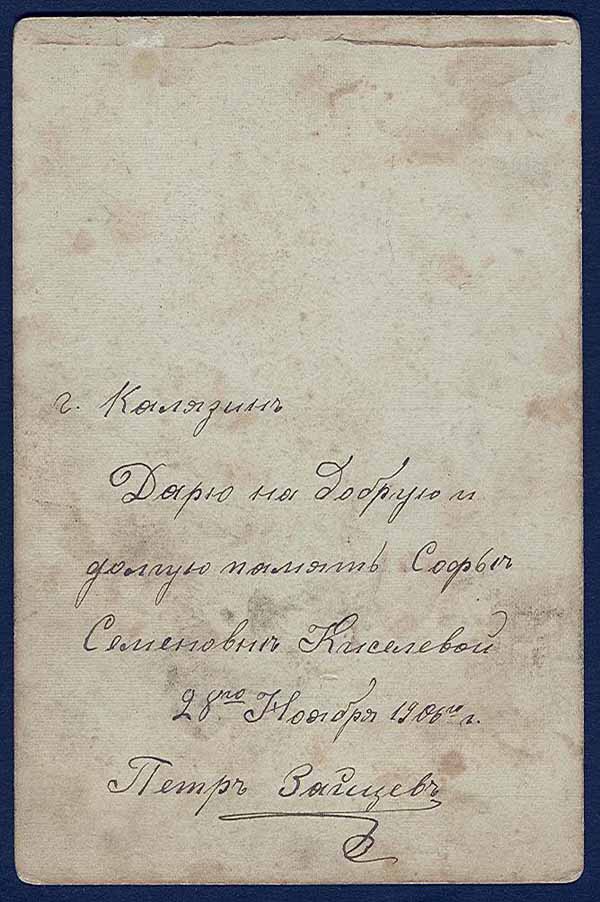 г. Калязинъ
Дарю на добрую и
долгую память Софьѣ
Семеновнѣ Киселевой
28го Ноября 1906го г.
Петръ Зайцевъ